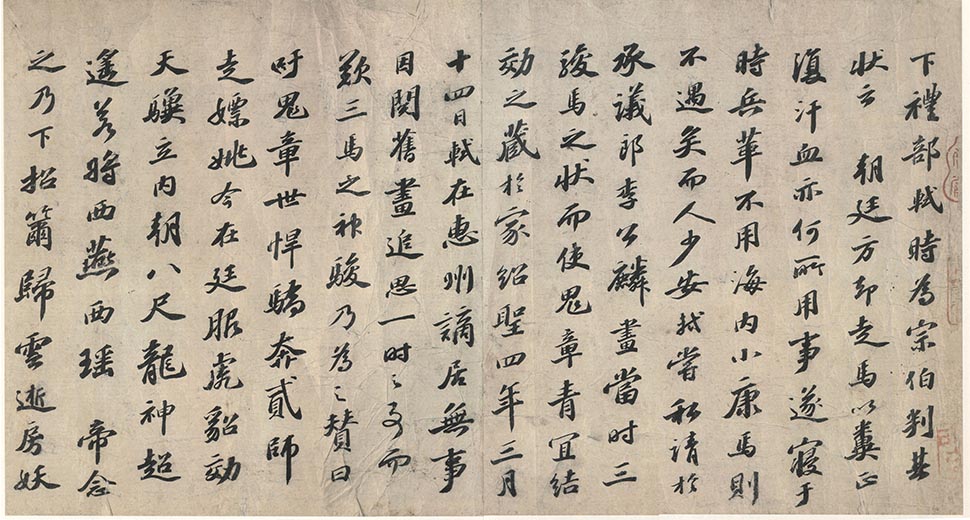 下禮部軾時為宗伯判其
狀云　朝廷方却走馬以糞正
復汗血亦何所用事遂寢于
時兵革不用海内小康馬則
不遇矣而人少安軾嘗私請於
承議郎李公麟畫當時三
駿馬之狀而使鬼章青宜結
効之藏於家紹聖四年三月
十四日軾在惠州謫居無事
因閱舊畫追思一時之事而
歎三馬之神駿乃為之贊曰
吁鬼章世悍驕奔貳師
走嫖姚今在廷服虎貂効
天驥立内朝八尺龍神超
遙若將西燕西瑤　帝念
之乃下招籋歸雲逝房妖